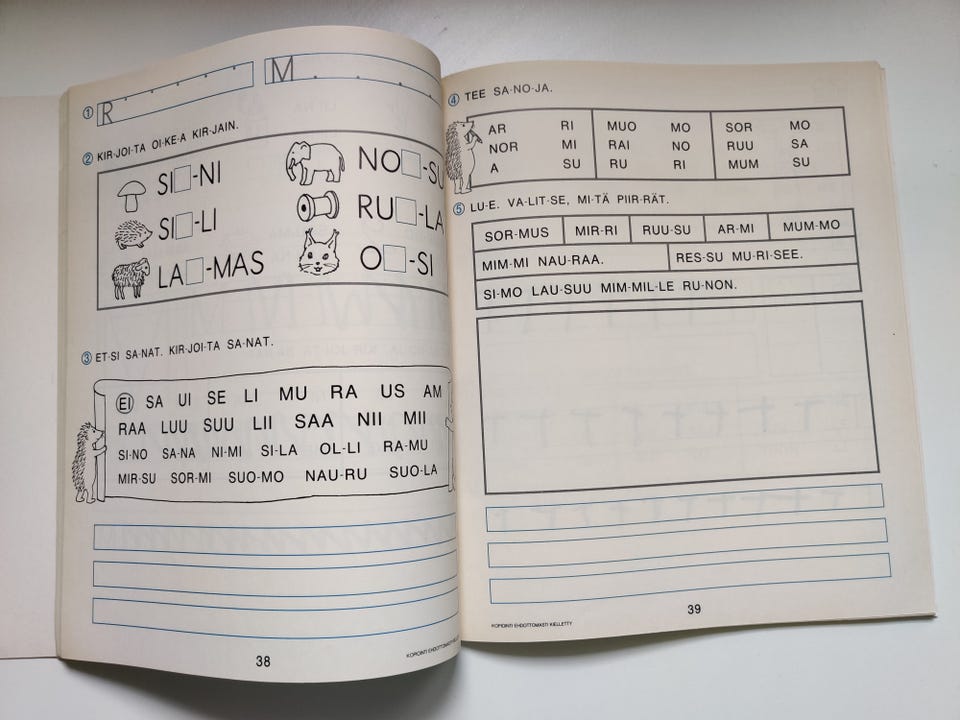 ① R M
② KIR-JOI-TA OI-KE-A KIR-JAIN.
SI□-NI NO□-SU
SI□-LI RU□-LA
LA□-MAS O□-SI
③ ET-SI SA-NAT. KIR-JOI-TA SA-NAT.
EI SA UI SE LI MU RA US AM
RAA LUU SUU LII SAA NII MII
SI-NO SA-NA NI-MI SI-LA OL-LI RA-MU
MIR-SU SOR-MI SUO-MO NAU-RU SUO-LA
KOPIOINTI EHDOTTOMASTI KIELLETTY
38
④ TEE SA-NO-JA.
AR RI MUO MO SOR MO
NOR MI RAI NO RUU SA
A SU RU RI MUM SU
⑤ LU-E. VA-LIT-SE, MI-TÄ PIIR-RÄT.
SOR-MUS MIR-RI RUU-SU AR-MI MUM-MO
MIM-MI NAU-RAA. RES-SU MU-RI-SEE.
SI-MO LAU-SUU MIM-MIL-LE RU-NON.
KOPIOINTI EHDOTTOMASTI KIELLETTY
39